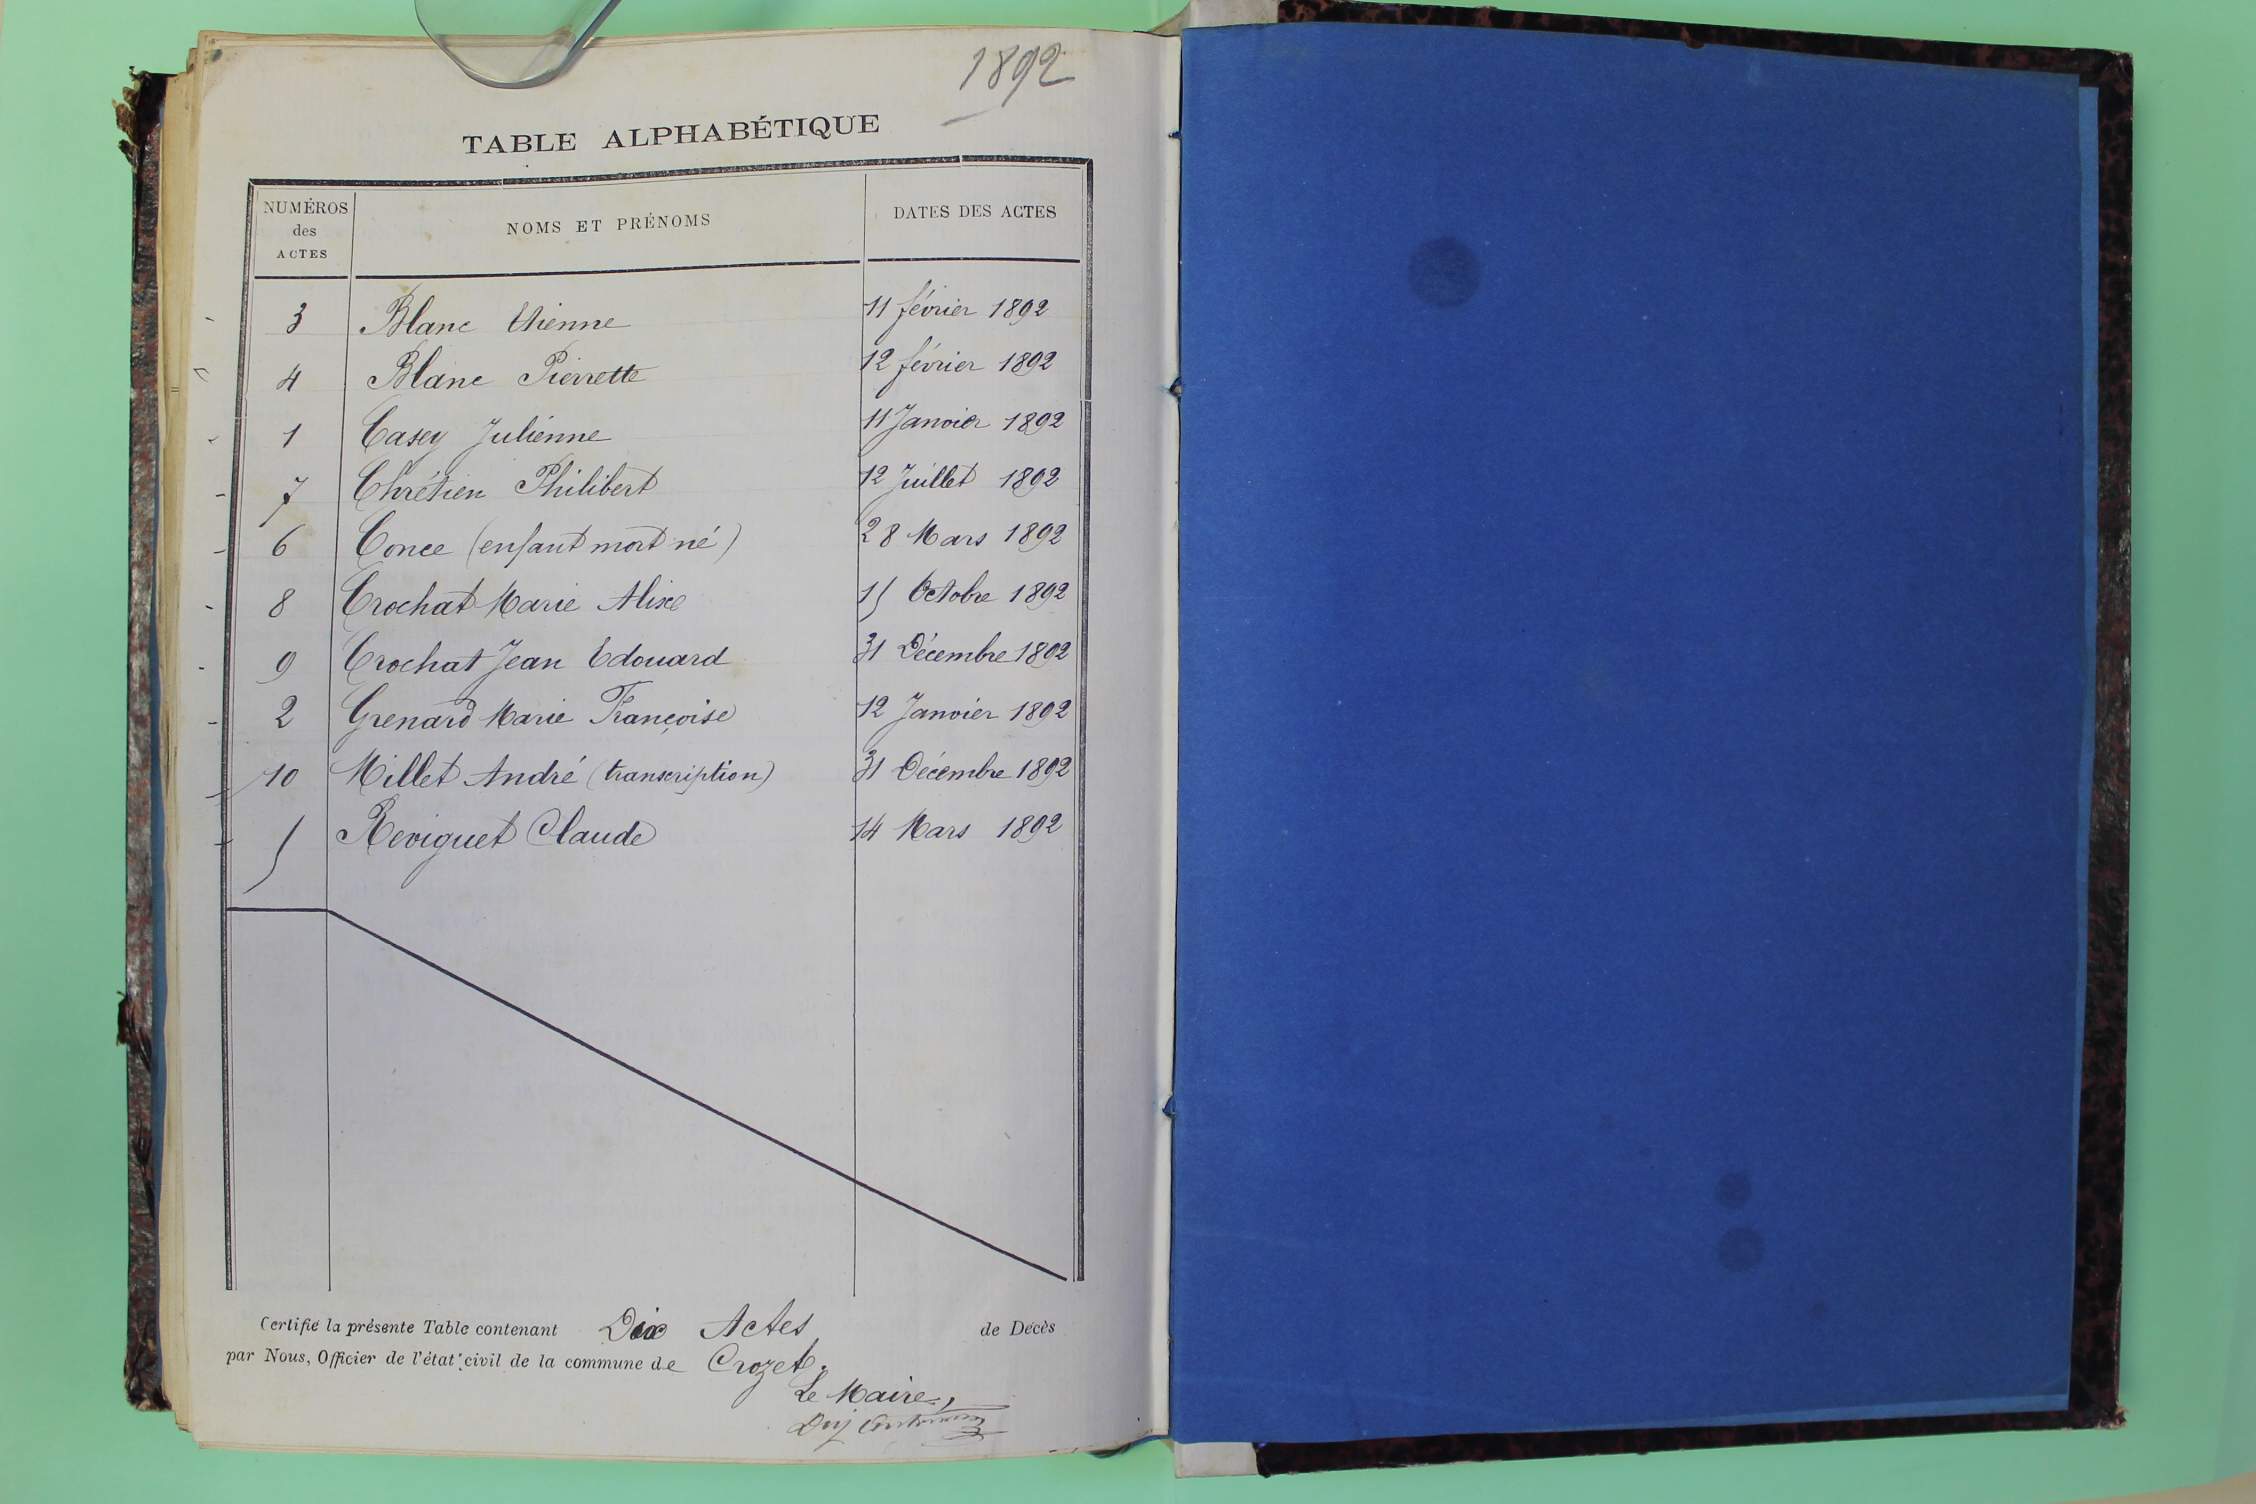 1892
TABLE ALPHABÉTIQUE
NUMÉROS des ACTES NOMS ET PRÉNOMS DATES DES ACTES
3 Blanc Etienne 11 février 1892
4 Blanc Pierrette 12 février 1892
1 Casey Julienne 11 Janvier 1892
7 Chrétien Philibert 12 Juillet 1892
6 Conce (enfant mort né) 28 Mars 1892
8 Crochat Marie Alixe 15 Octobre 1892
9 Crochat Jean Edouard 31 Décembre 1892
2 Grenard Marie Françoise 12 Janvier 1892
10 Millet André (transcription) 31 Décembre 1892
5 Reviguet Claude 14 Mars 1892
Certifié la présente Table contenant Dix Actes de Décès
par Nous, Officier de l'état civil de la commune de Crozet.
Le Maire,